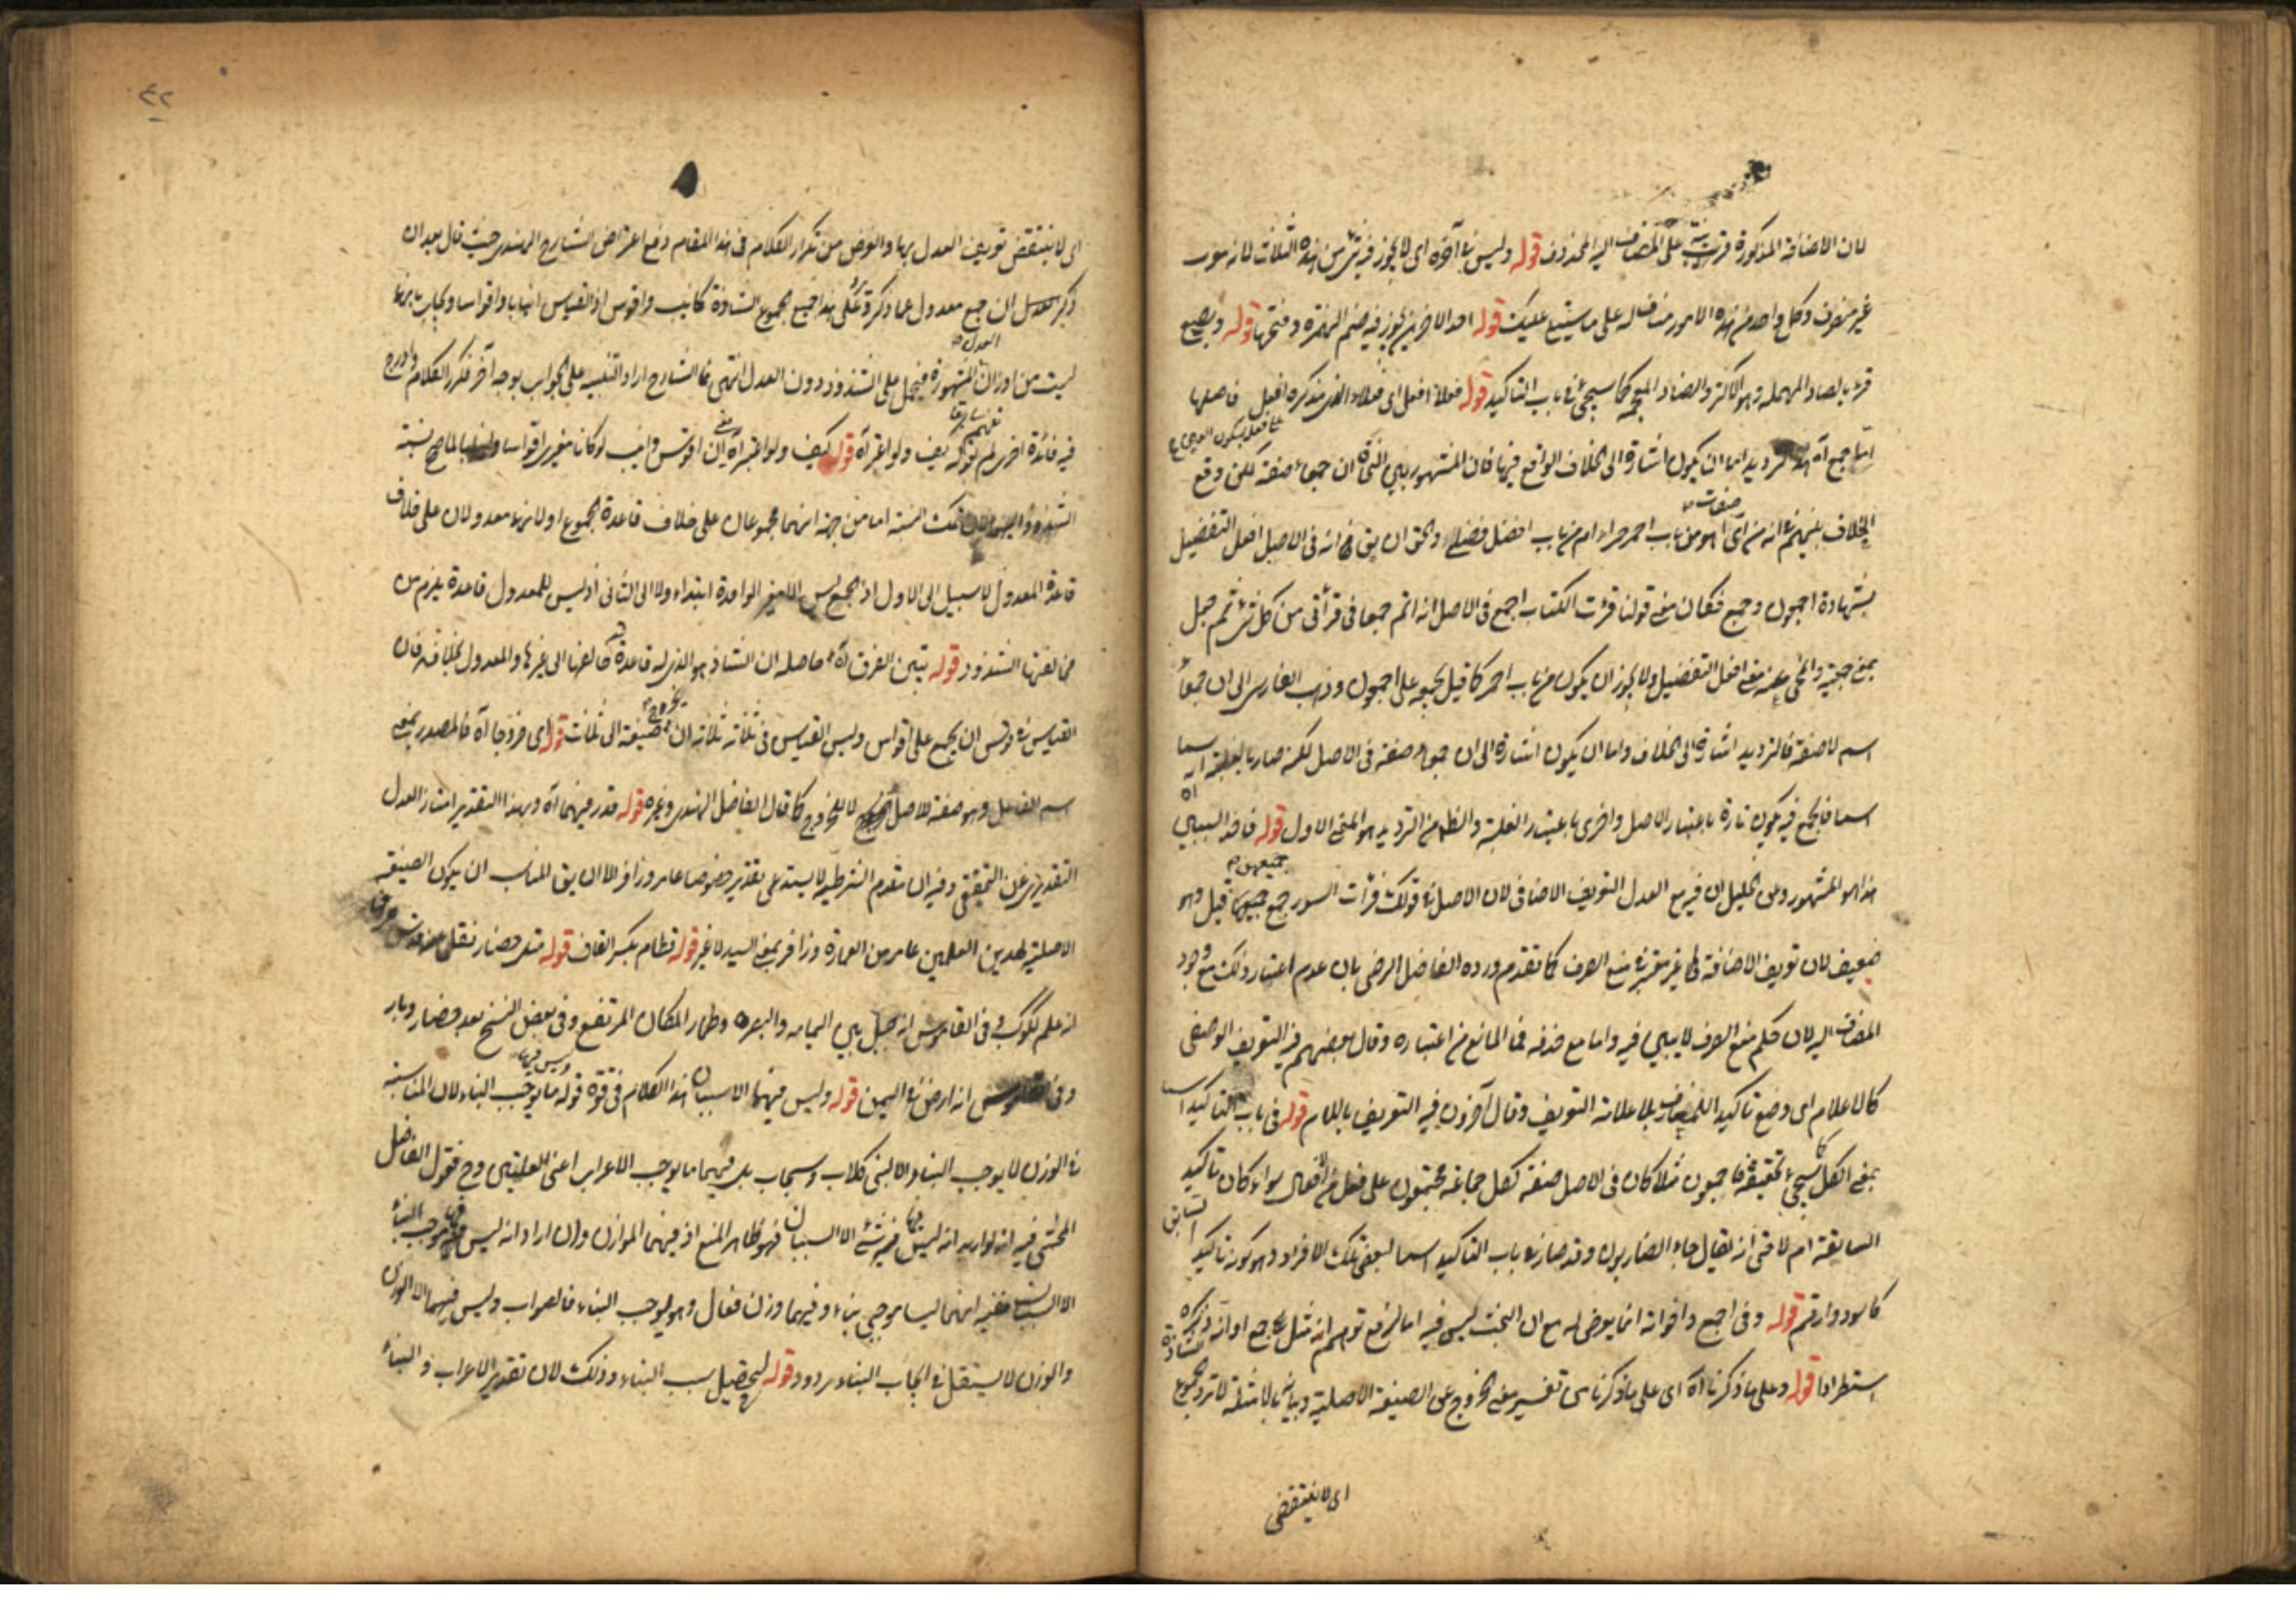 لان الاضافة المذكورة قرينة على المضاف اليه المحذوف قوله وليس في آخره اى لا يجوز في شئ من هذه الثلاث لانه سورة
غير منصرف وكل واحد من هذه الامور مناف له على ما سيتلى عليك قوله احد الامرين يجوز فيه ضم الهمزة وفتحها قوله وبصع
قرئ بالصاد المهملة وهو الاكثر والضاد المعجمة كما سيجئ في باب التاكيد قوله فعلاء افعل اى فعلاء الذى مذكره افعل فاصلها
اما جمع آه الترديد اما ان يكون اشارة الى الخلاف الواقع فيها فان المشهور بين النحاة ان جمعاء صفة لكن وقع
الخلاف بينهم في انه من اى صفات اهو من باب احمر حمراء ام من باب افضل فضلى والحق ان يق انه فى الاصل افعل التفضيل
بشهادة اجمعون وجمع فكان معنى قولنا قرأت الكتاب اجمع فى الاصل انه اتم جمعا فى قرأتى من كل شئ ثم جعل
بمعنى جميعه وانمحى عنه معنى افعل التفضيل ولا يجوز ان يكون من باب احمر كما قيل لجمعه على اجمعون وذهب الفارسى الى ان جمعاء
اسم لا صفة فالترديد اشارة الى الخلاف واما ان يكون اشارة الى ان جمعاء صفة فى الاصل لكنه صار بالغلبة اسما
اسما فالجمع فيه يكون تارة باعتبار الاصل واخرى باعتبار الغلبة والظاهر من الترديد هو المعنى الاول قوله فاحد السببين
هذا هو المشهور وعن الخليل ان فيه مع العدل التعريف الاضافى لان الاصل في قولك قرأت السور جمع جميعهن قيل وهو
ضعيف لان تعريف الاضافة غير معتبر في منع الصرف كما تقدم ورده الفاضل الرضى بان عدم اعتبار ذلك مع وجود
المضاف اليه لان حكم منع الصرف لا يبين فيه واما مع حذفه فما المانع من اعتباره وقال بعضهم فيه التعريف الوضعى
كالاعلام اى وضع تاكيد اللمعارف بلا علامة التعريف وقال آخرون فيه التعريف باللام قوله فى باب التاكيد اسما
بمعنى الكل كما سيجئ تحقيقه فاجمعون مثلا كان فى الاصل صفة لكل جماعة مجتمعون على فعل من الافعال سواء كان تاكيد
السابقة ام لا حتى انه يقال جاء الضاربون وقد صار في باب التاكيد اسما لبعض تلك الافراد وهو كونه تاكيد السابق
كاسود وارقم قوله وفى اجمع واخواته انما يعرض له مع ان البحث ليس فيه اما لدفع توهم انه مثل جمع او انه ذكره
استطرادا قوله وعلى ما ذكرنا آه اى على ما ذكرنا من تفسير معنى الخروج عن الصيغة الاصلية وبيانه بالامثلة لا ترد الجموع الشاذة
اى لا ينتقض
٤٢
اى لا ينتقض تعريف العدل بها والغرض من تكرار الكلام فى هذا المقام دفع اعتراض الشارح الهندى حيث قال بعد ان
ذكر العدل ان جمع معدول عما ذكر وعلى هذا جميع الجموع الشاذة كانيب واقوس اذ القياس انيابا واقواسا ولكن يقال انها
ليست من اوزان العدل المشهورة فيحمل على الشذوذ دون العدل انتهى فالشارح اراد التنبيه على الجواب بوجه آخر فكرر الكلام وادرج
فيه فائدة اخرى لم تفهم سابقا قوله كيف ولو اعتبر آه قوله كيف ولو اعتبر آه يعنى ان اقوس وانيب لو كانا مغيرى اقواسا وانيابا لما صح نسبة
الشذوذ الى تلك النسبة اما من جهة انهما مجموعان على خلاف قاعدة الجموع او لانهما معدولان على خلاف
قاعدة المعدول لا سبيل الى الاول اذ الجمع ليس الا مغير الواحدة ابتداء ولا الى الثانى اذ ليس للمعدول قاعدة يلزم من
مخالفتها الشذوذ قوله تبين الفرق آه حاصله ان الشاذ هو الذى له قاعدة مخالفها الى غيرها والمعدول بخلافه فان
القياس في قوس ان يجمع على اقواس وليس القياس فى ثلاثة ثلاثة ان يخرج صيغة الى ثلاث قوله اى خروجا آه فالمصدر بمعنى
اسم الفاعل وهو صفة للاصل لا للخروج كما قال الفاضل الهندى وغيره قوله قدر فيهما آه وبهذا التقدير امتاز العدل
التقديرى عن التحقيقى وفيه ان مقدم الشرطية لا يستدعى تقدير خصوصا عامر وزافر الا ان يق المناسب ان يكون الصيغة
الاصلية لهذين العلمين عامر من العمارة وزافر بمعنى السيد لا غير قوله قطام بكسر القاف قوله مثل حضار نقل عن
انه علم لكوكب وفى القاموس انه جبل بين اليمامة والبصرة وطمار المكان المرتفع وفى بعض النسخ بعد حضار وبار
وفى القاموس انه ارض في اليمن قوله وليس فيهما الا سببان هذا الكلام فى قوة قوله وليس فيها ما يوجب البناء لان المناسبة
في الوزن لا يوجب البناء والا لبنى كلاب وسحاب بل فيهما ما يوجب الاعراب اعنى العلمية وح فقول الفاضل
المحشى فيه انه لو اريد انه ليس فيها شئ الا السببان فهو ظاهر المنع اذ فيهما الموازن وان اراد انه ليس فيها موجب البناء
الا السببان ففيه انهما ليسا موجبى بناء وفيهما وزن فعال وهو يوجب البناء فالصواب وليس فيهما الا الوزن
والوزن لا يستقل في ايجاب البناء مردود قوله لتحصيل سبب البناء وذلك لان تقدير الاعراب والبناء